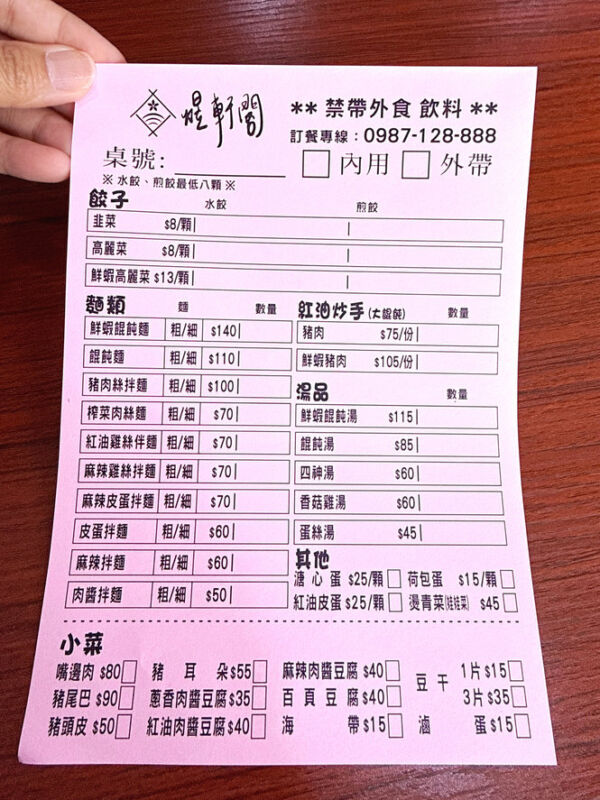 煋軒閣
** 禁帶外食 飲料 **
訂餐專線：0987-128-888
桌號：
內用 外帶
※ 水餃、煎餃最低八顆 ※
餃子 水餃 煎餃
韭菜 $8/顆
高麗菜 $8/顆
鮮蝦高麗菜 $13/顆
麵類 麵 數量
鮮蝦餛飩麵 粗/細 $140
餛飩麵 粗/細 $110
豬肉絲拌麵 粗/細 $100
榨菜肉絲麵 粗/細 $70
紅油雞絲伴麵 粗/細 $70
麻辣雞絲拌麵 粗/細 $70
麻辣皮蛋拌麵 粗/細 $70
皮蛋拌麵 粗/細 $60
麻辣拌麵 粗/細 $60
肉醬拌麵 粗/細 $50
紅油炒手(大餛飩) 數量
豬肉 $75/份
鮮蝦豬肉 $105/份
湯品 數量
鮮蝦餛飩湯 $115
餛飩湯 $85
四神湯 $60
香菇雞湯 $60
蛋絲湯 $45
其他
溏心蛋 $25/顆 荷包蛋 $15/顆
紅油皮蛋 $25/顆 燙青菜(娃娃菜) $45
小菜
嘴邊肉 $80 豬耳朵 $55 麻辣肉醬豆腐 $40 豆干 1片 $15
豬尾巴 $90 蔥香肉醬豆腐 $35 百頁豆腐 $40 3片 $35
豬頭皮 $50 紅油肉醬豆腐 $40 海帶 $15 滷蛋 $15